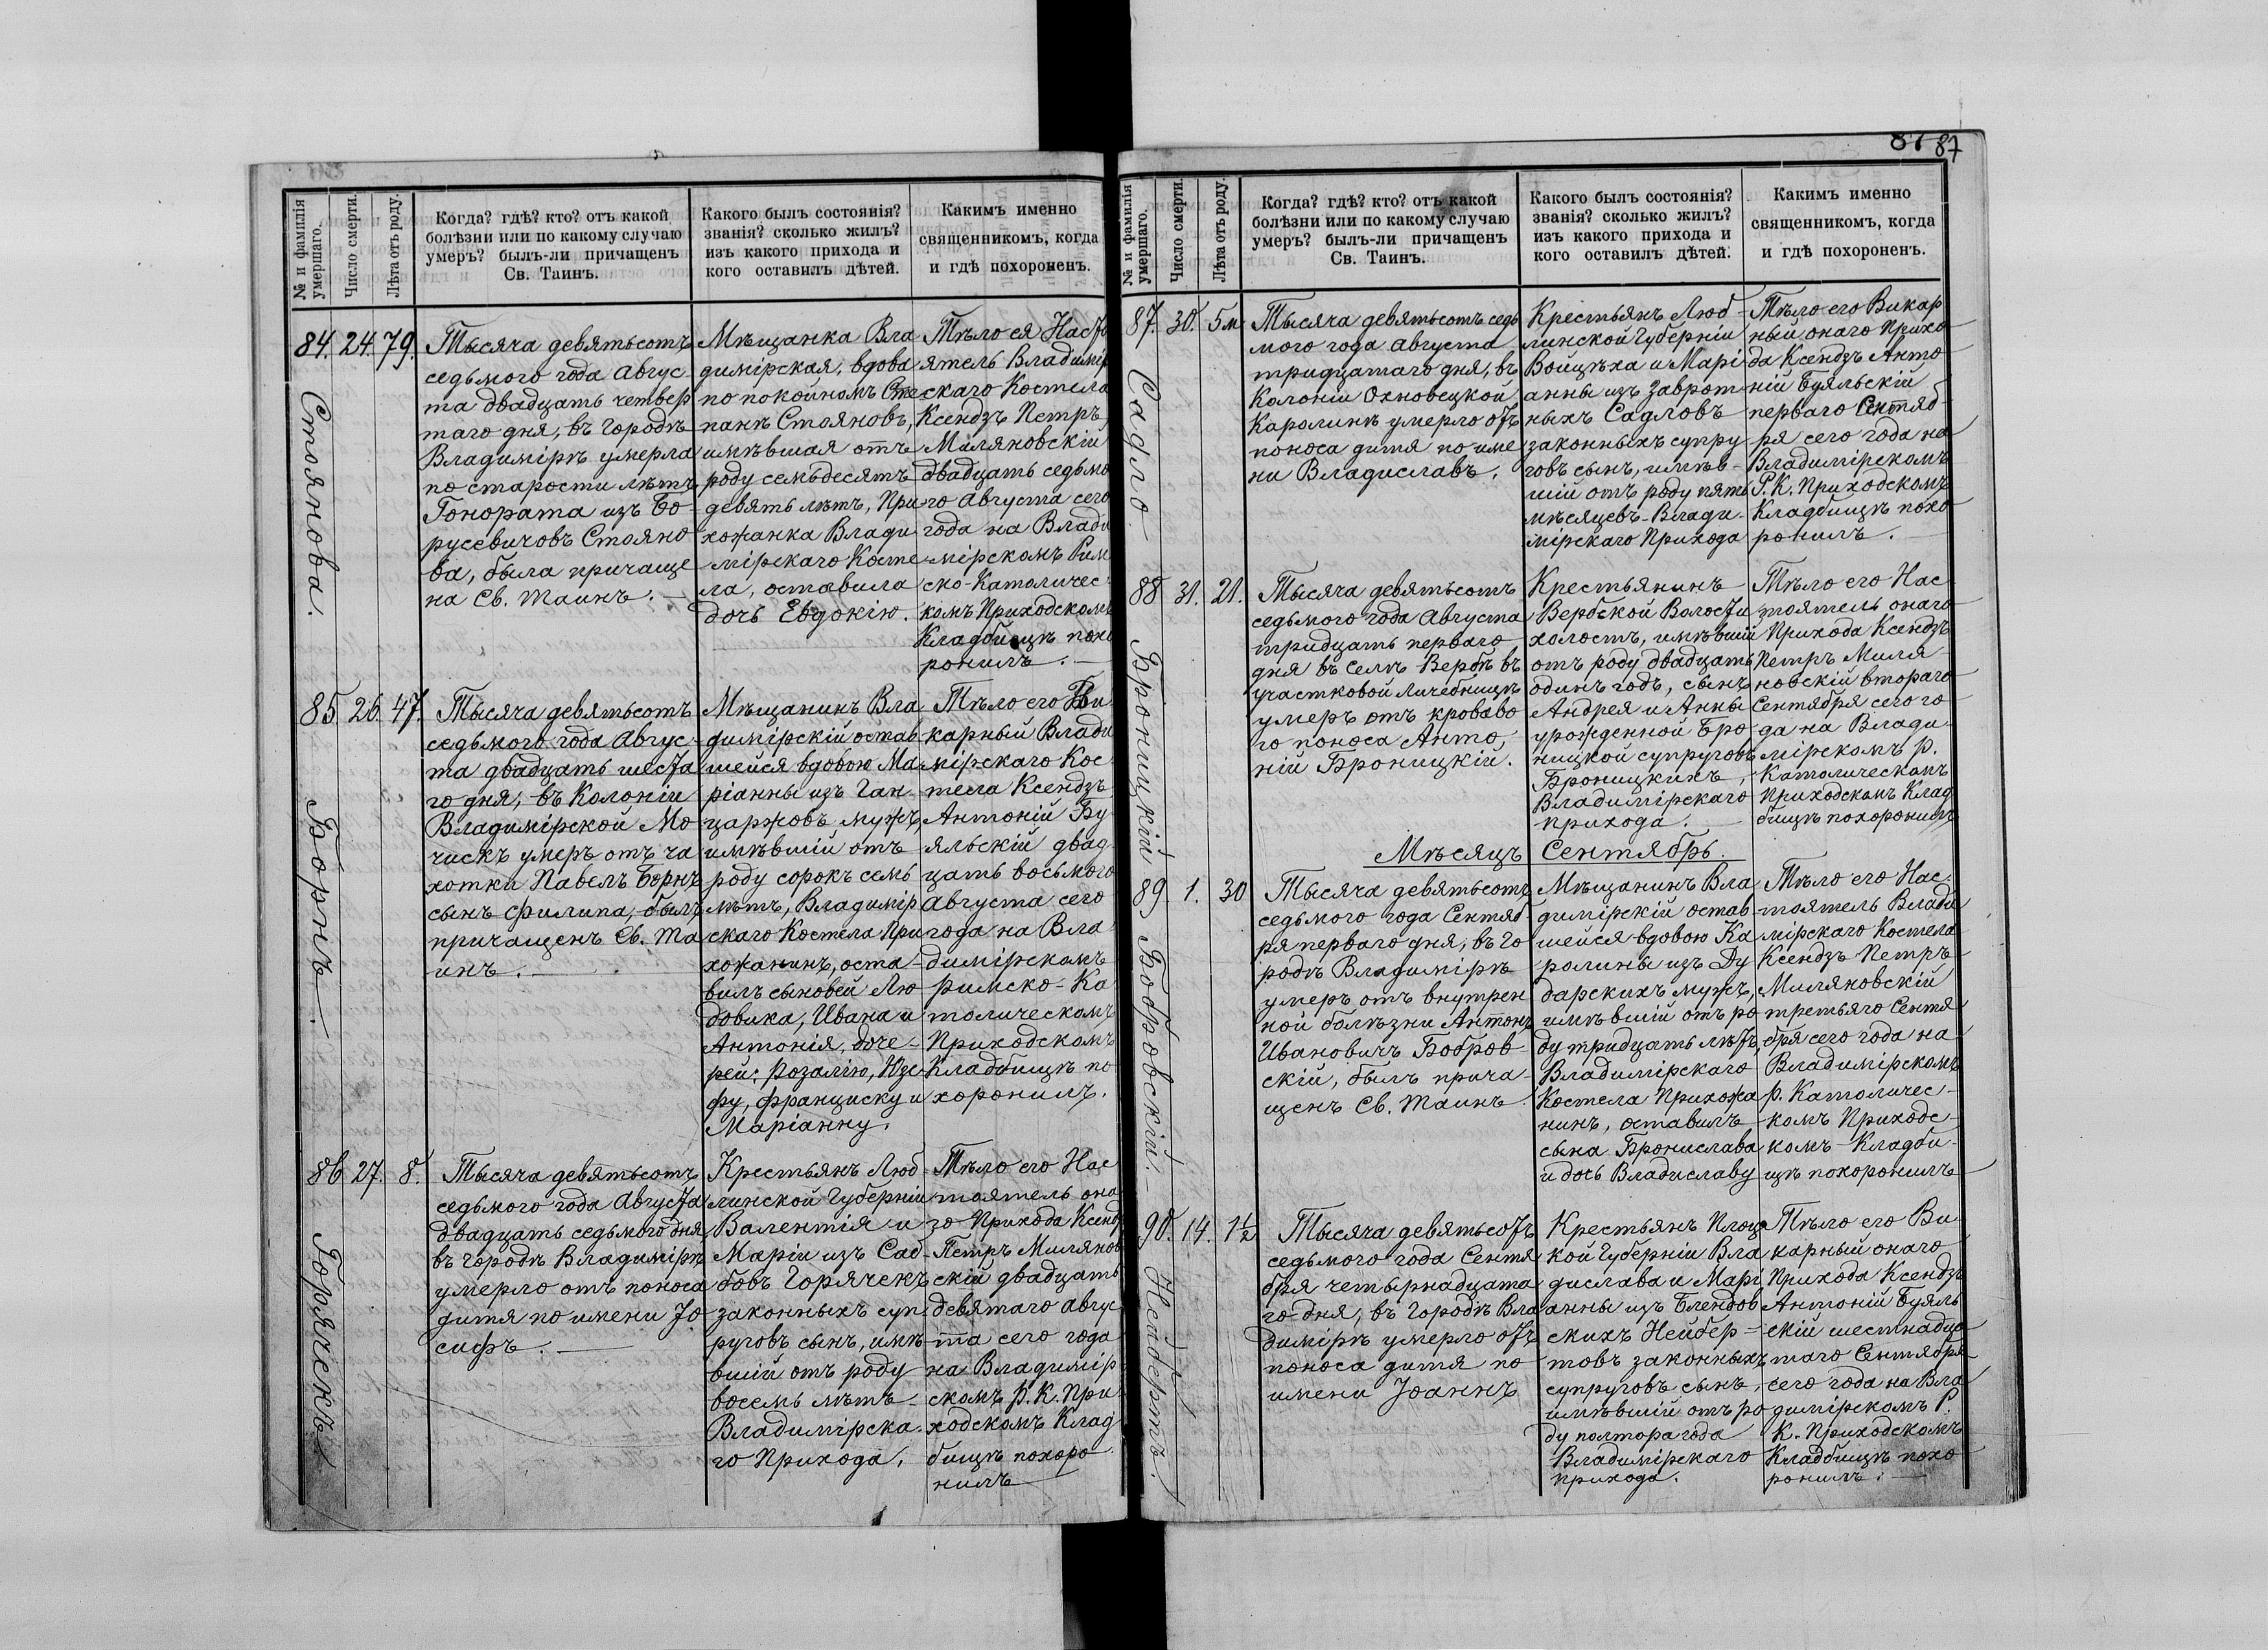 87 87
№ и фамилія
умершаго.
Число смерти.
Лѣта отъ роду.
Когда? гдѣ? кто? отъ какой
болѣзни или по какому случаю
умеръ? былъ-ли причащенъ
Св. Таинъ.
Какого былъ состоянія?
званія? сколько жилъ?
изъ какого прихода и
кого оставилъ дѣтей.
Какимъ именно
священникомъ, когда
и гдѣ похороненъ.
84. 24. 79.
Стоянова.
Тысяча девятьсотъ
седьмого года Авгус
та двадцать четвер
таго дня, въ Городѣ
Владимірѣ умерла
по старости лѣтъ
Гонората изъ Бо-
русевичовъ Стояно
ва, была причаще
на Св. Таинъ. —
Мѣщанка Вла
димірская, вдова
по покойномъ Сте
панѣ Стояновѣ,
имѣвшая отъ
роду семьдесятъ
девять лѣтъ, При
хожанка Влади
мірскаго Косте
ла, оставила
дочь Евдокію.
Тѣло ея Насто
ятель Владимір
скаго Костела
Ксендзъ Петръ
Миляновскій
двадцать седьмо
го Августа сего
года на Влади
мірскомъ Рим
ско-Католичес
комъ Приходскомъ
Кладбищѣ похо
ронилъ. —
85. 26. 47.
Борнъ.
Тысяча девятьсотъ
седьмого года Авгус-
та двадцать шеста
го дня, въ Колоніи
Владимірской Мо
чискъ умеръ отъ ча
хотки Павелъ Борнъ
сынъ Филипа, былъ
причащенъ Св. Та
инъ. —
Мѣщанинъ Вла
димірскій остав
шейся вдовою Ма
ріанны изъ Ган-
царжовъ мужъ,
имѣвшій отъ
роду сорокъ семь
лѣтъ, Владимір
скаго Костела При
хожанинъ, оста-
вилъ сыновей Лю
довика, Ивана и
Антонія, доче-
рей: Розалію, Юзе
фу, Франциску и
Маріанну.
Тѣло его Ви
карный Влади
мірскаго Кос
тела Ксендзъ
Антоній Бу
яльскій двад
цать восьмого
Августа сего
года на Вла
димірскомъ
римско-Ка
толическомъ
Приходскомъ
Кладбищѣ по
хоронилъ.
86 27. 8.
Горячекъ
Тысяча девятьсотъ
седьмого года Августа
двадцать седьмого дня
въ городѣ Владимірѣ
умерло отъ поноса
дитя по имени Іо
сифъ. —
Крестьянъ Люб
линской Губерніи
Валентія и
Маріи изъ Саб-
бовъ Горячекъ
законныхъ суп
руговъ сынъ, имѣ
вшій отъ роду
восемь лѣтъ-
Владимірска
го Прихода.
Тѣло его Нас
тоятель она
го Прихода Ксендзъ
Петръ Миляновс
скій двадцать
девятаго авгус
та сего года
на Владимір
скомъ р. К. При
ходскомъ Клад
бищѣ похоро
нилъ
№ и фамилія
умершаго.
Число смерти.
Лѣта отъ роду.
Когда? гдѣ? кто? отъ какой
болѣзни или по какому случаю
умеръ? былъ-ли причащенъ
Св. Таинъ.
Какого былъ состоянія?
званія? сколько жилъ?
изъ какого прихода и
кого оставилъ дѣтей.
Какимъ именно
священникомъ, когда
и гдѣ похороненъ.
87. 30. 5м
Садло
Тысяча девятьсотъ седь
мого года Августа
тридцатаго дня, въ
Колоніи Охновецкой
Каролинѣ умерло отъ
поноса дитя по име
ни Владиславъ.
Крестьянъ Люб
линской Губерніи
Войцѣха и Марі
анны изъ Заврот
ныхъ Садловъ
законныхъ супру
говъ сынъ, имѣв-
шій отъ роду пять
мѣсяцевъ-Влади
мірскаго Прихода
Тѣло его Викар
ный онаго Прихо
да Ксендзъ Анто
ній Буяльскій
перваго Сентяб
ря сего года на
Владимірскомъ
Р. К. Приходскомъ
Кладбищѣ похо
ронилъ.
88 31. 21.
Броницкій
Тысяча девятьсотъ
седьмого года Августа
тридцать перваго
дня въ селѣ Вербѣ въ
участковой личебницѣ
умеръ отъ кроваво
го поноса Анто
ній Броницкій.
Крестьянинъ
Вербской Волости
холостъ, имѣвшій
отъ роду двадцать
одинъ годъ, сынъ
Андрея и Анны
урожденной Бро
ницкой супруговъ
Броницкихъ,
Владимірскаго
прихода.
Тѣло его Нас
тоятель онаго
Прихода Ксендзъ
Петръ Миля
новскій втораго
Сентября сего го
да на Влади
мірскомъ р.
Католическомъ
Приходскомъ Клад
бищѣ похоронилъ
Мѣсяцъ Сентябрь.
89. 1. 30
Бобровскій. —
Тысяча девятьсотъ
седьмого года Сентяб-
ря перваго дня, въ го
родѣ Владимірѣ
умеръ отъ внутрен
ной болѣзни Антонъ
Ивановичъ Бобров-
скій, былъ прича-
щенъ Св. Таинъ
Мѣщанинъ Вла
димірскій остав-
шейся вдовою Ка
ролины изъ Ду
дарскихъ мужъ,
имѣвшій отъ ро
ду тридцать лѣтъ,
Владимірскаго
Костела Прихожа
нинъ, оставилъ
сына Бронислава
и дочь Владиславу
Тѣло его Нас-
тоятель Влади
мірскаго Костела
Ксендзъ Петръ
Миляновскій
третьяго Сентя
бря сего года на
Владимірскомъ
р. Католичес-
комъ Приходс
комъ Кладби-
щѣ похоронилъ
90. 14. 1½
Нейбертъ.
Тысяча девятьсотъ
седьмого года Сентя
бря четырнадцата
го дня, въ Городѣ Вла
димірѣ умерло отъ
поноса дитя по
имени Іоаннъ
Крестьянъ Плоц
кой Губерніи Вла
дислава и Марі
анны изъ Блендов
скихъ Нейбер=
товъ законныхъ
супруговъ сынъ,
имѣвшій отъ ро
ду полтора года
Владимірскаго
прихода.
Тѣло его Ви
карный онаго
Прихода Ксендзъ
Антоній Буяль
скій шестнадца
таго Сентября
сего года на Вла
димірскомъ Р.
К. Приходскомъ
Кладбищѣ похо
ронилъ. —